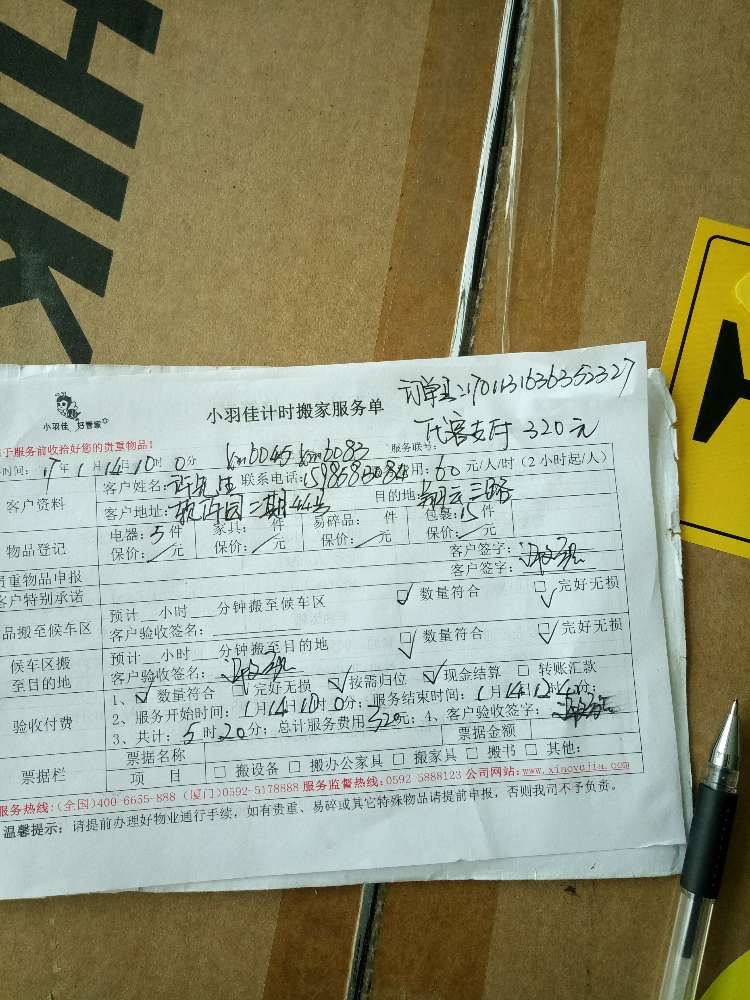 HIK
小羽佳 好管家
小羽佳计时搬家服务单
订单号:1701131636352327
代客支付 320元
于服务前收拾好您的贵重物品!
服务联号:
时间: 17年1月14日10时0分 6045 6083
客户资料
客户姓名: 许先生 联系电话: 用: 60 元/人/时 (2小时起/人)
客户地址: 软件园二期44号 目的地: 翔云三路
物品登记
电器: 5件 家具: 件 易碎品: 件 包装: 15件
保价: 元 保价: 元 保价: 元 保价: 元
贵重物品申报 客户签字:
客户特别承诺 客户签字:
品搬至候车区
预计 小时 分钟搬至候车区 数量符合 完好无损
客户验收签名:
候车区搬至目的地
预计 小时 分钟搬至目的地 数量符合 完好无损
客户验收签名:
验收付费
1、 数量符合 完好无损 按需归位 现金结算 转账汇款
2、服务开始时间: 1月14日10时0分; 服务结束时间: 1月14日12时40分;
3、共计: 5时20分; 总计服务费用320元; 4、客户验收签字:
票据栏
票据名称 票据金额
项 目 搬设备 搬办公家具 搬家具 搬书 其他:
服务热线:(全国)400-6655-888 (厦门)0592-5178888 服务监督热线:0592 5888123 公司网站:www.xiaoyujia.com
温馨提示: 请提前办理好物业通行手续,如有贵重、易碎或其它特殊物品请提前申报,否则我司不予负责。